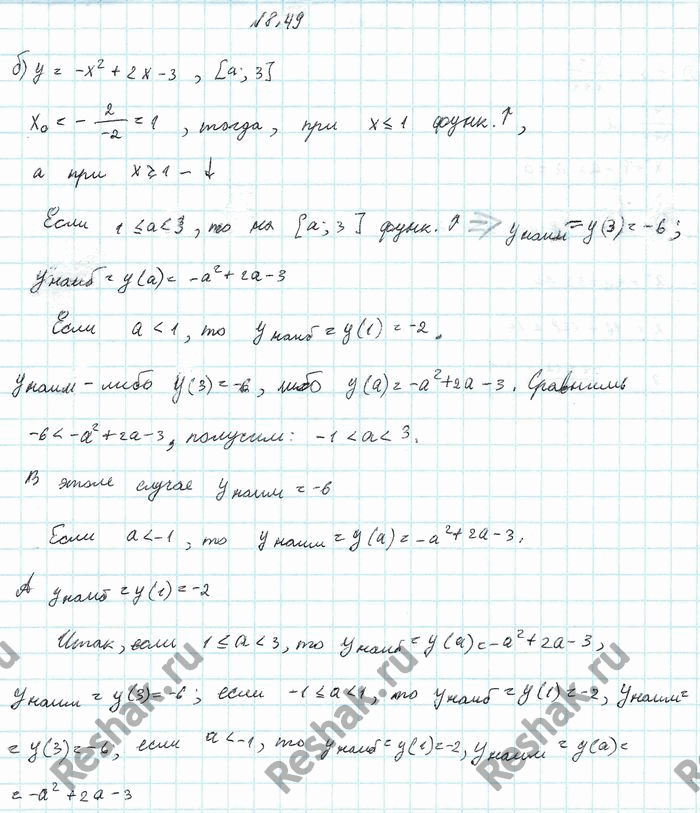 №8.49
б) y = -x² + 2x - 3 , [a; 3]
x₀ = - 2/-2 = 1 , тогда, при x ≤ 1 функ. ↑,
а при x ⩾ 1 - ↓
Если 1 ≤ a < 3, то на [a; 3] функ. ↑ ⇒ yнаим = y(3) = -6;
yнаиб = y(a) = -a² + 2a - 3
Если a < 1, то yнаиб = y(1) = -2.
yнаим - либо y(3) = -6, либо y(a) = -a² + 2a - 3. Сравнить
-6 < -a² + 2a - 3, получим: -1 < a < 3.
В этом случае yнаим = -6
Если a < -1, то yнаим = y(a) = -a² + 2a - 3.
А yнаиб = y(1) = -2
Итак, если 1 ≤ a < 3, то yнаиб = y(a) = -a² + 2a - 3,
yнаим = y(3) = -6; если -1 ≤ a < 1, то yнаиб = y(1) = -2, yнаим =
= y(3) = -6, если a < -1, то yнаиб = y(1) = -2, yнаим = y(a) =
= -a² + 2a - 3
Reshak.ru
Reshak.ru
Reshak.ru